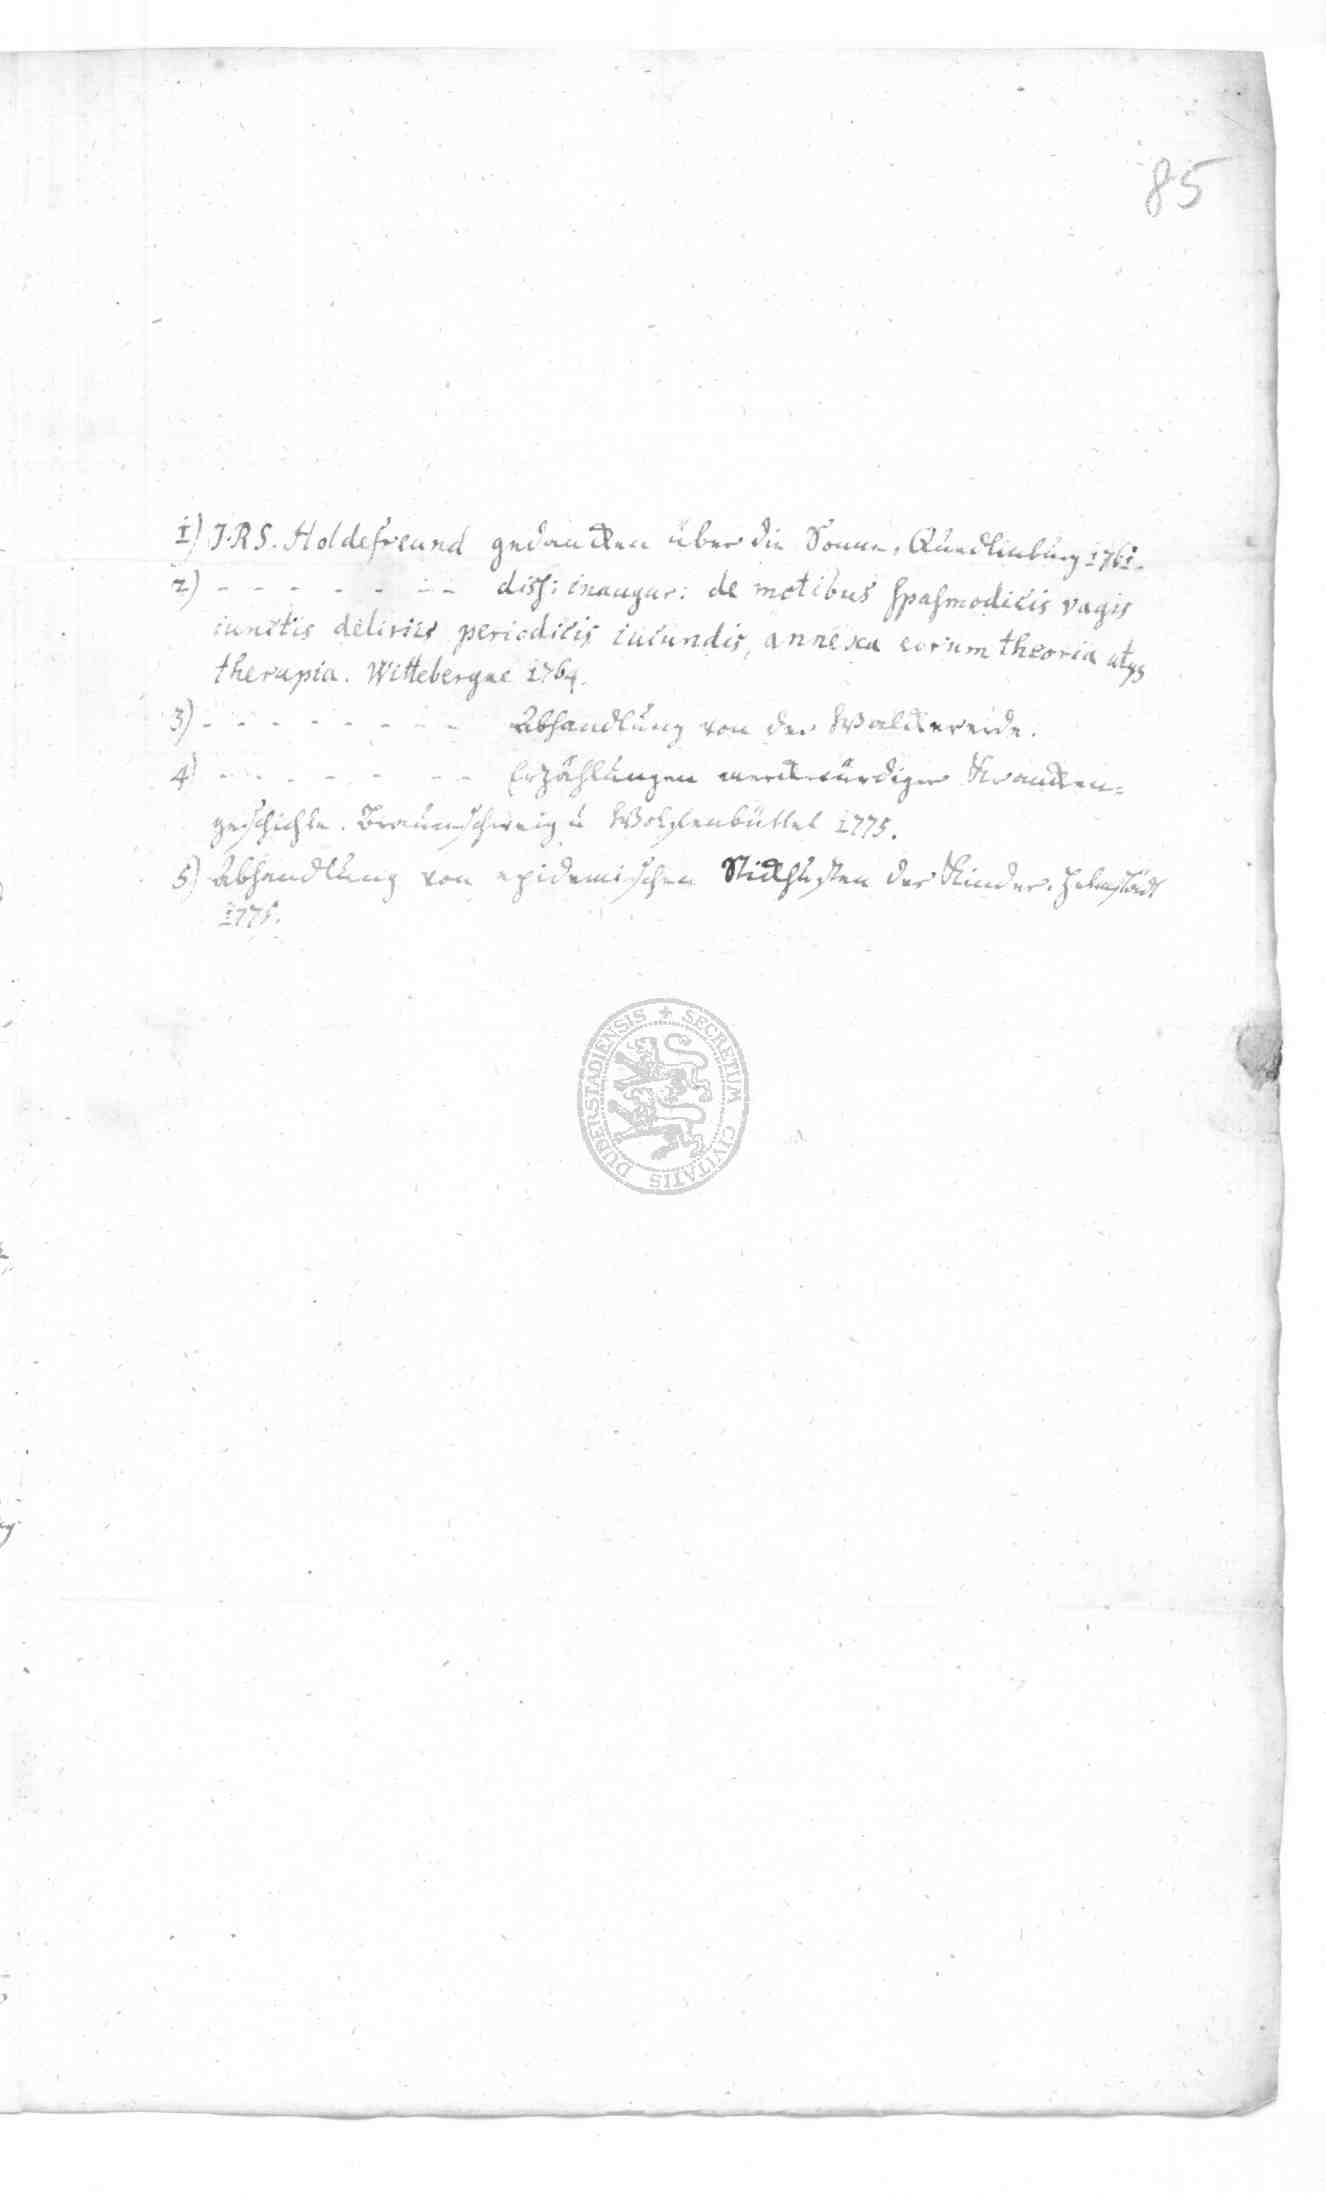 85
1) J. R S. Holdefreund gedancken über die Sonne, Quedlinburg 1761.
2) - - - - - - - diss: inaugur: de motibus spasmodicis vagis
iunctis deliriis periodicis iucundis, annexa eorum theoria atqs
therapia. Wittebergae 1764.
3) - - - - - - - - Abhandlung von der
4) - - - - - - - Erzählungen merckwürdiger Krancken=
geschichte. Braunschweig u Wolfenbüttel 1775.
5) Abhandlung von epidemischen Stickhusten der Kinder. Helmstädt
1776.
DUDERSTADIENSIS + SECRETUM CIVITATIS